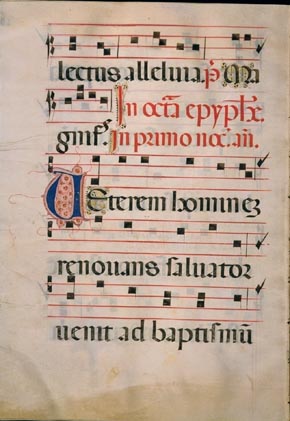 lectus alleluia. p̄ Ma
In octā epyph̄ie.
gnif̄. In primo noc̄. an̄.
Veterem hominez
renouans saluator
uenit ad baptismū